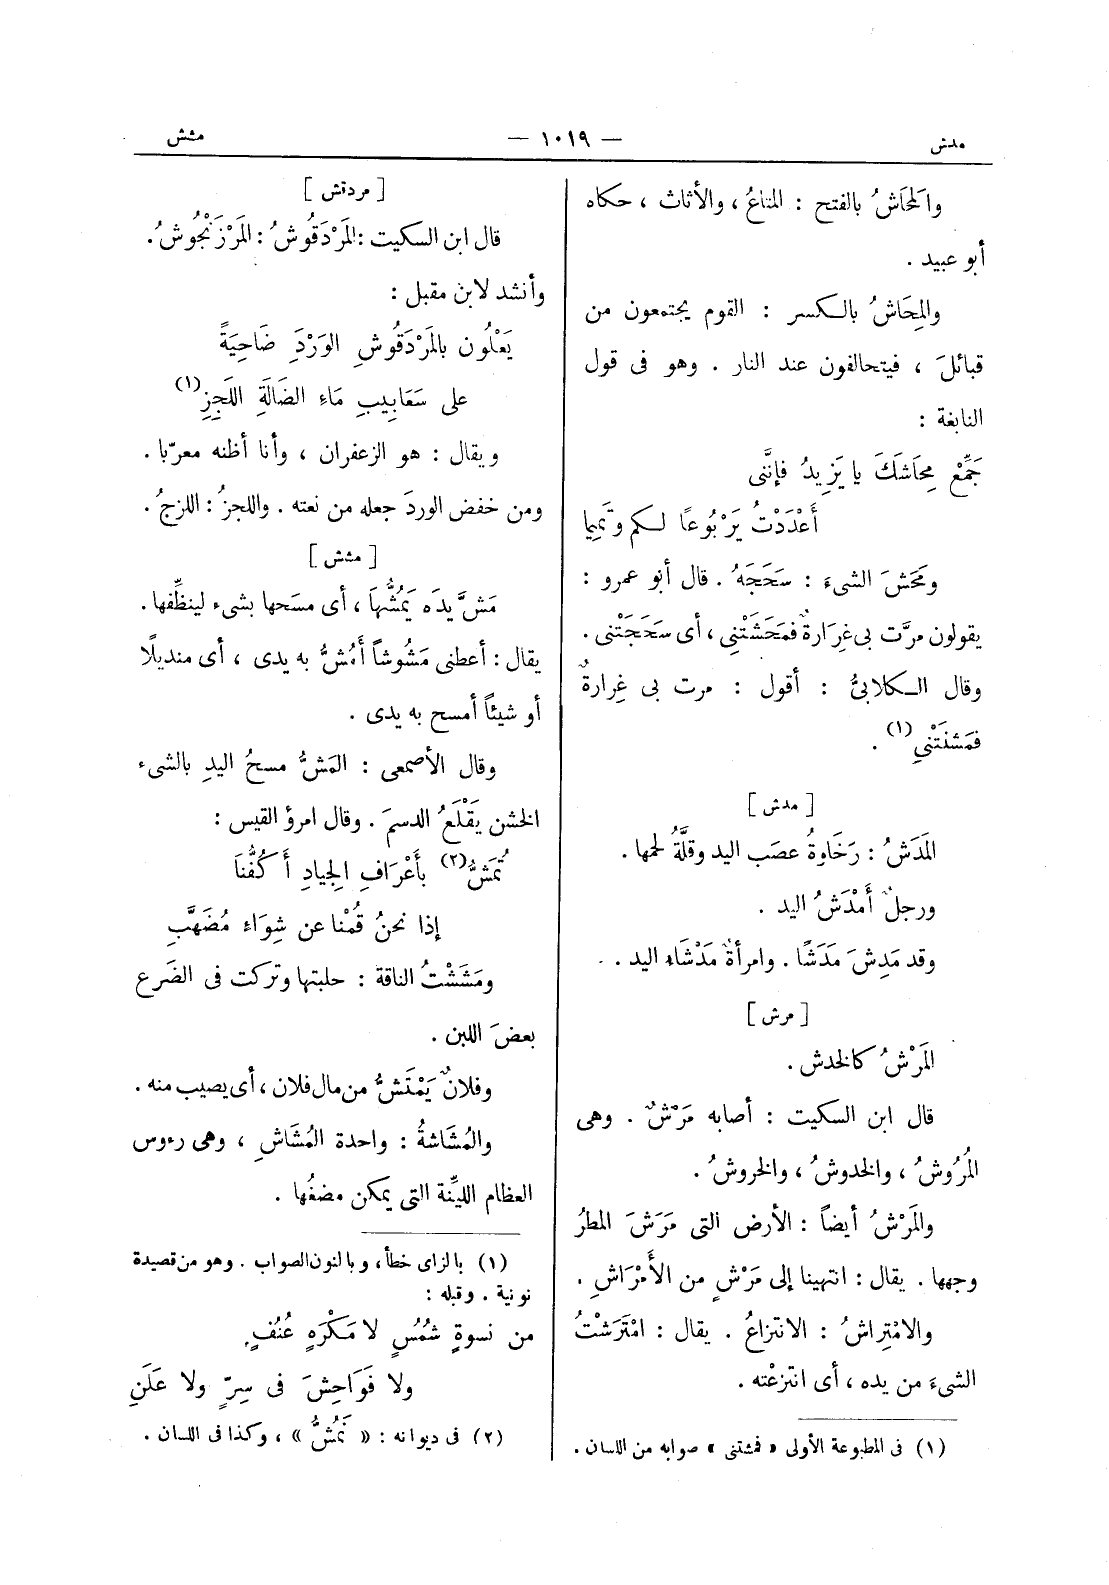 مدش
— ١٠١٩ —
مشش
والمَحَاشُ بالفتح : المتاعُ ، والأثاث ، حكاه
أبو عبيد .
والمِحَاشُ بالكسر : القوم يجتمعون من
قبائلَ ، فيتحالفون عند النار . وهو فى قول
النابغة :
جَمِّعْ مِحَاشَكَ يا يَزِيدُ فإنَّنى
أَعْدَدْتُ يَرْبُوعًا لكم وتَمِيما
ومَحَشَ الشىءَ : سَحَجَهُ . قال أبو عمرو :
يقولون مرَّت بى غِرَارةٌ فمَحَشَتْنِى ، أى سَحَجَتْنى .
وقال الكلابىُّ : أقول : مرت بى غِرارةٌ
فمَشَنَتْنِى (١) .
[ مدش ]
المَدَشُ : رَخَاوةُ عصَب اليد وقلَّةُ لحمها .
ورجلٌ أَمْدَشُ اليد .
وقد مَدِشَ مَدَشًا . وامرأةٌ مَدْشَاء اليد .
[ مرش ]
المَرْشُ كالخدش .
قال ابن السكيت : أصابه مَرْشٌ . وهى
المُرُوشُ ، والخدوشُ ، والخروشُ .
والمَرْشُ أيضاً : الأرض التى مَرَشَ المطرُ
وجهها . يقال : انتهينا إلى مَرْشٍ من الأَمْرَاشِ .
والامْتِراشُ : الانتزاعُ . يقال : امْتَرَشْتُ
الشىءَ من يده ، أى انتزعْته .
(١) فى المطبوعة الأولى « فمشتنى » صوابه من اللسان .
[ مردقش ]
قال ابن السكيت : المَرْدَقُوشُ : المَرْزَنْجُوشُ .
وأنشد لابن مقبل :
يَعْلُون بالمَرْدَقُوشِ الوَرْدَ ضَاحِيَةً
على سَعَابِيبِ مَاءِ الضَالَةِ اللَجِزِ (١)
ويقال : هو الزعفران ، وأنا أظنه معرّبا .
ومن خفض الوردَ جعله من نعته . واللجزُ : اللزجُ .
[ مشش ]
مَشَّ يدَه يَمُشُّهَا ، أى مسَحها بشىء لينظِّفها .
يقال : أعطنى مَشُوشاً أَمُشُّ به يدى ، أى منديلًا
أو شيئاً أمسح به يدى .
وقال الأصمعى : المَشُّ مسحُ اليدِ بالشىء
الخشن يَقْلَعُ الدسمَ . وقال امرؤ القيس :
تَمُشُّ (٢) بأَعْرَافِ الجِيادِ أَكُفَّنَا
إذا نحنُ قُمْنا عن شِوَاء مُضَهَّبِ
ومَشَشْتُ الناقة : حلبتها وتركت فى الضَرع
بعضَ اللبن .
وفلانٌ يَمْتَشُّ من مال فلان ، أى يصيب منه .
والمُشَاشةُ : واحدة المُشَاشِ ، وهى رءوس
العظام الليِّنة التى يمكن مضغُها .
(١) بالزاى خطأ ، وبالنون الصواب . وهو من قصيدة
نونية . وقبله :
من نسوةٍ شُمُسٍ لا مَكْرَهٍ عُنُفٍ
ولا فَوَاحِشَ فى سِرٍّ ولا عَلَنِ
(٢) فى ديوانه : « نَمُشُّ » ، وكذا فى اللسان .